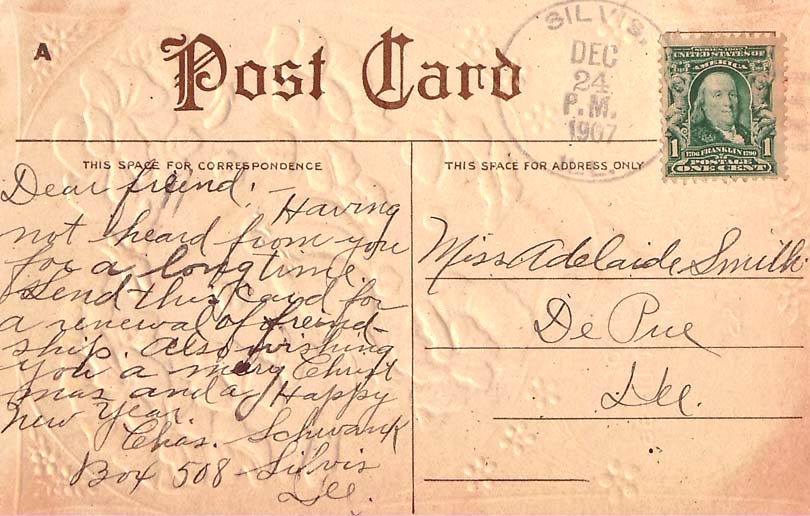 A
Post Card
SILVIS,
DEC
24
P.M.
1907
SERIES 1902
UNITED STATES OF
AMERICA
1 1706 FRANKLIN 1790 1
POSTAGE
ONE CENT
THIS SPACE FOR CORRESPONDENCE
THIS SPACE FOR ADDRESS ONLY
Dear friend: —
Having
not heard from you
for a long time
I send this card for
a renewal of freind-
ship. Also wishing
you a merry Christ
mas and a Happy
new Year
Chas. Schwank
Box 508 Silvis
Ill.
Miss Adelaide Smith
De Pue
Ill.